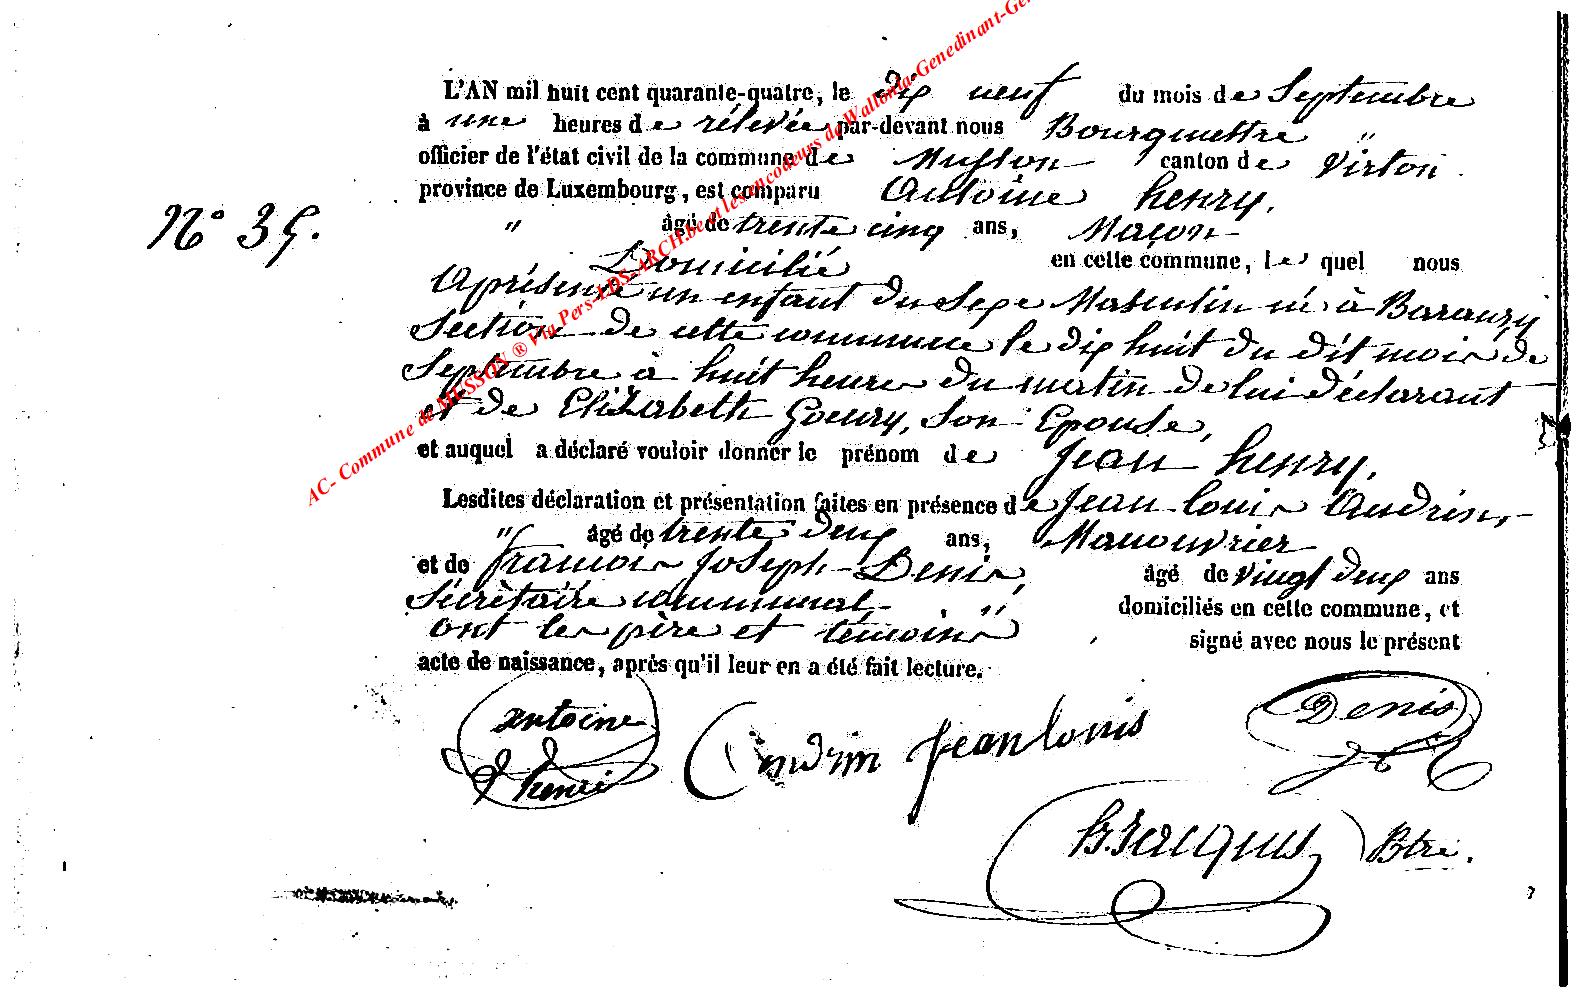 L'AN mil huit cent quarante-quatre, le dix neuf du mois de Septembre
à une heures de rélevée par-devant nous Bourgmettre "
officier de l'état civil de la commune de Musson canton de Virton
province de Luxembourg, est comparu Antoine henry,
N° 35. " âgé de trente cinq ans, Maçon
Domicilié en cette commune, le quel nous
Aprésenté un enfant du Sexe Masculin né à Baranzy
Section de cette commune le dix huit du dit mois de
Septembre à huit heures du matin de lui déclarant
et de Elizabeth Goeury, son Epouse,
et auquel a déclaré vouloir donner le prénom de Jean henry,
Lesdites déclaration et présentation faites en présence de Jean louis Andrin,
" âgé de trente deux ans, Manouvrier
et de francois Joseph Denis, âgé de vingt deux ans
Sécrétaire communal, " domiciliés en cette commune, et
ont les père et témoins signé avec nous le présent
acte de naissance, après qu'il leur en a été fait lecture.
antoine henri
andrin jean louis
Denis
Jacques Btre.
AC- Commune de MUSSON ® Via Pers-LDS-ARCH.be et les encodeurs de Wallonia-Genedinant-Ge